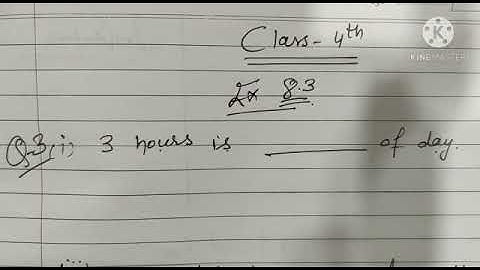 Class - 4th
KINEMASTER
Ex 8.3
Q3, i, 3 hours is ________ of day.